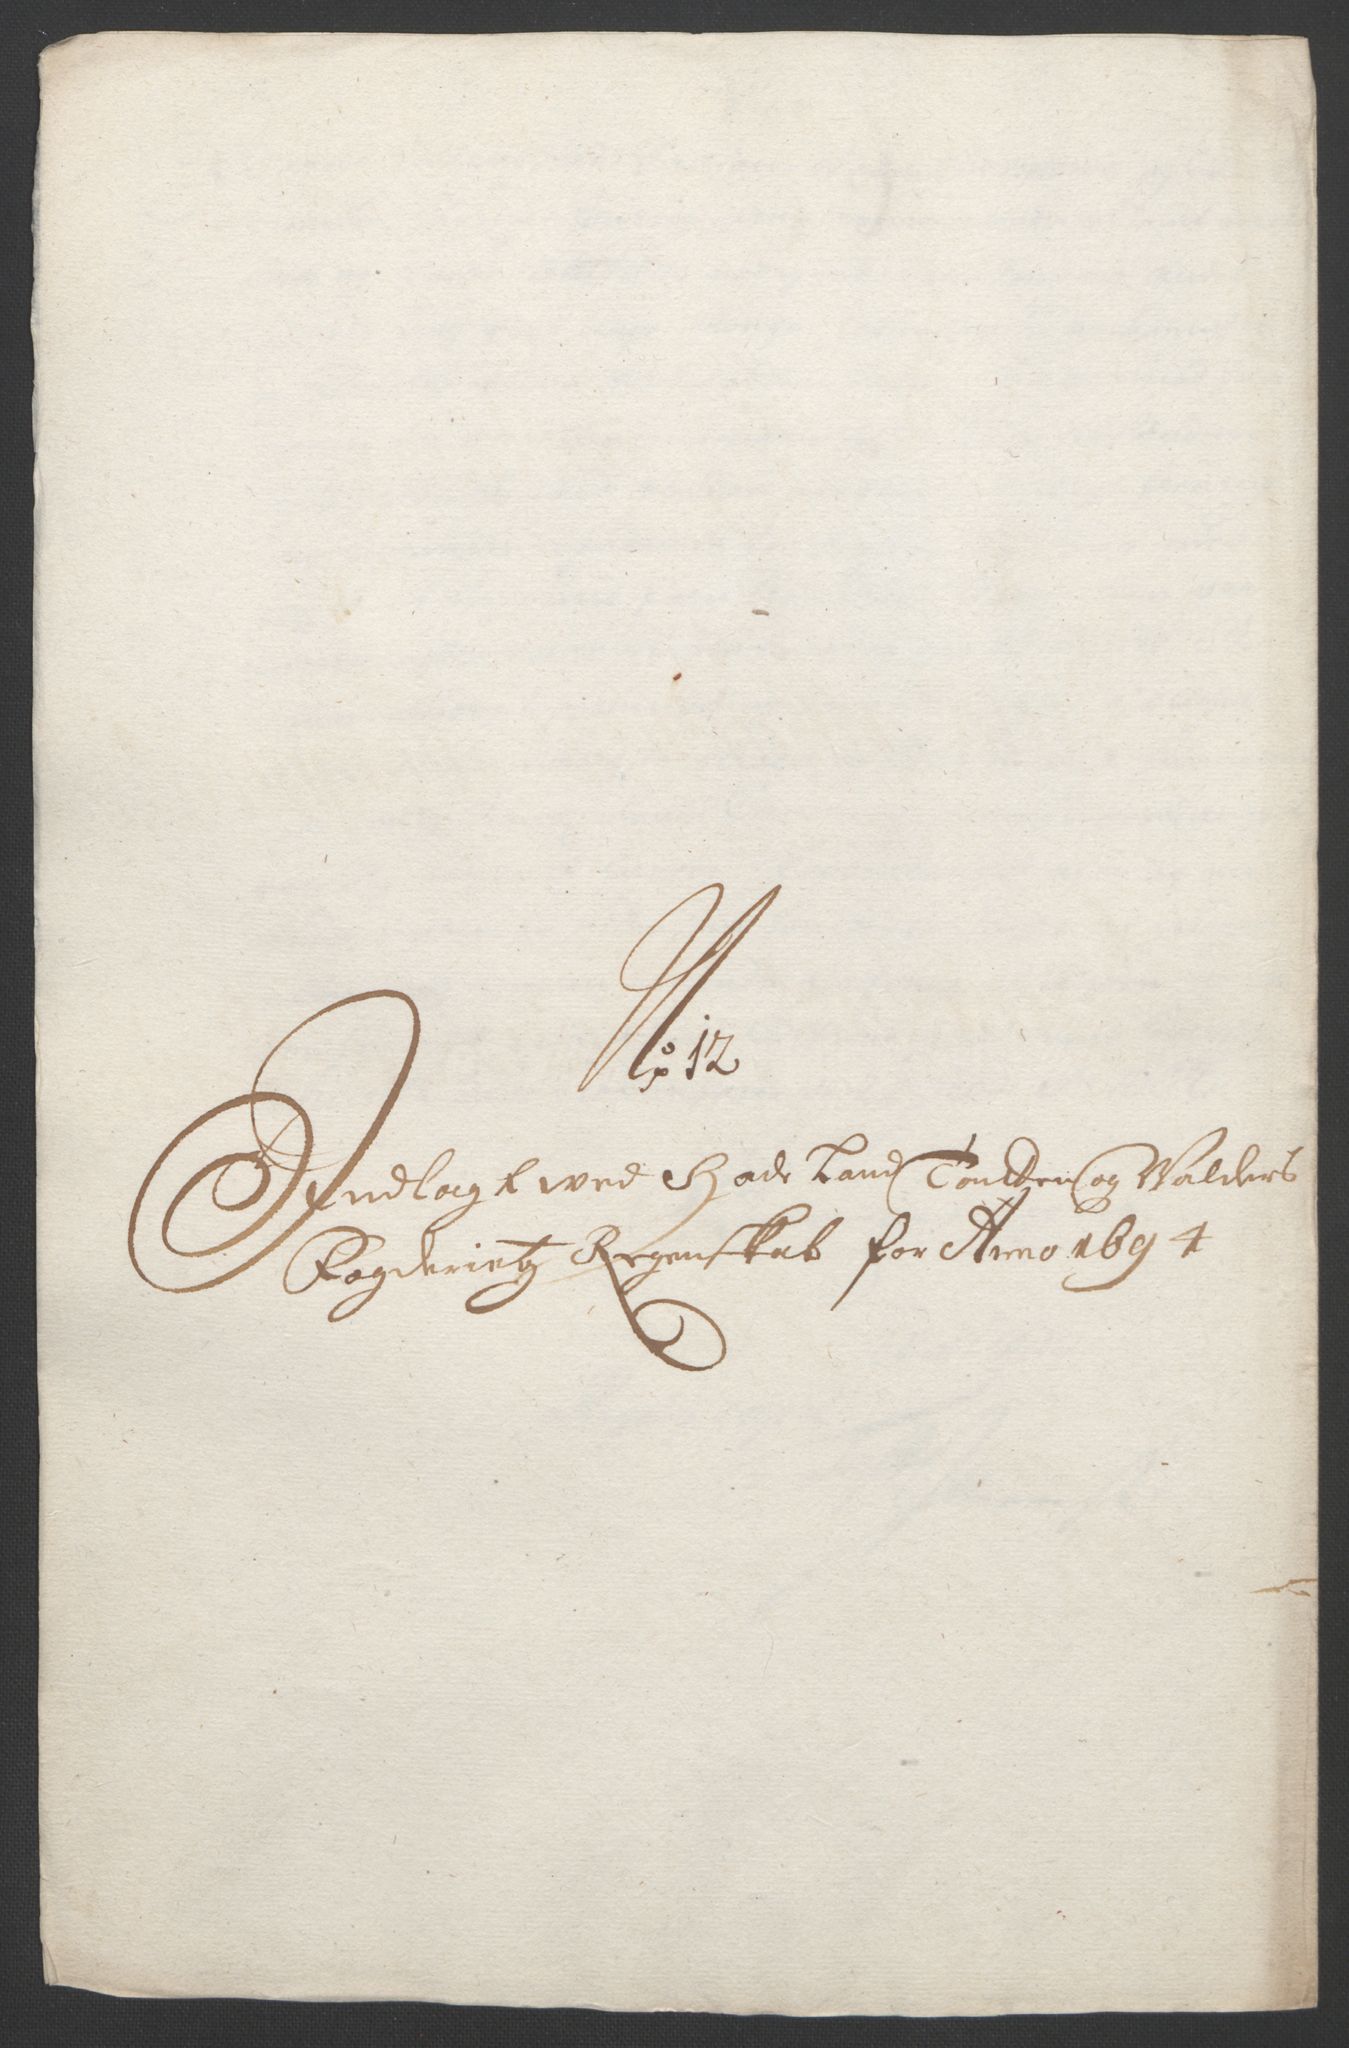 No 12
Indlagt wed Hade Land Toten og Valders
Fogderietz Regenskab for Anno 1694